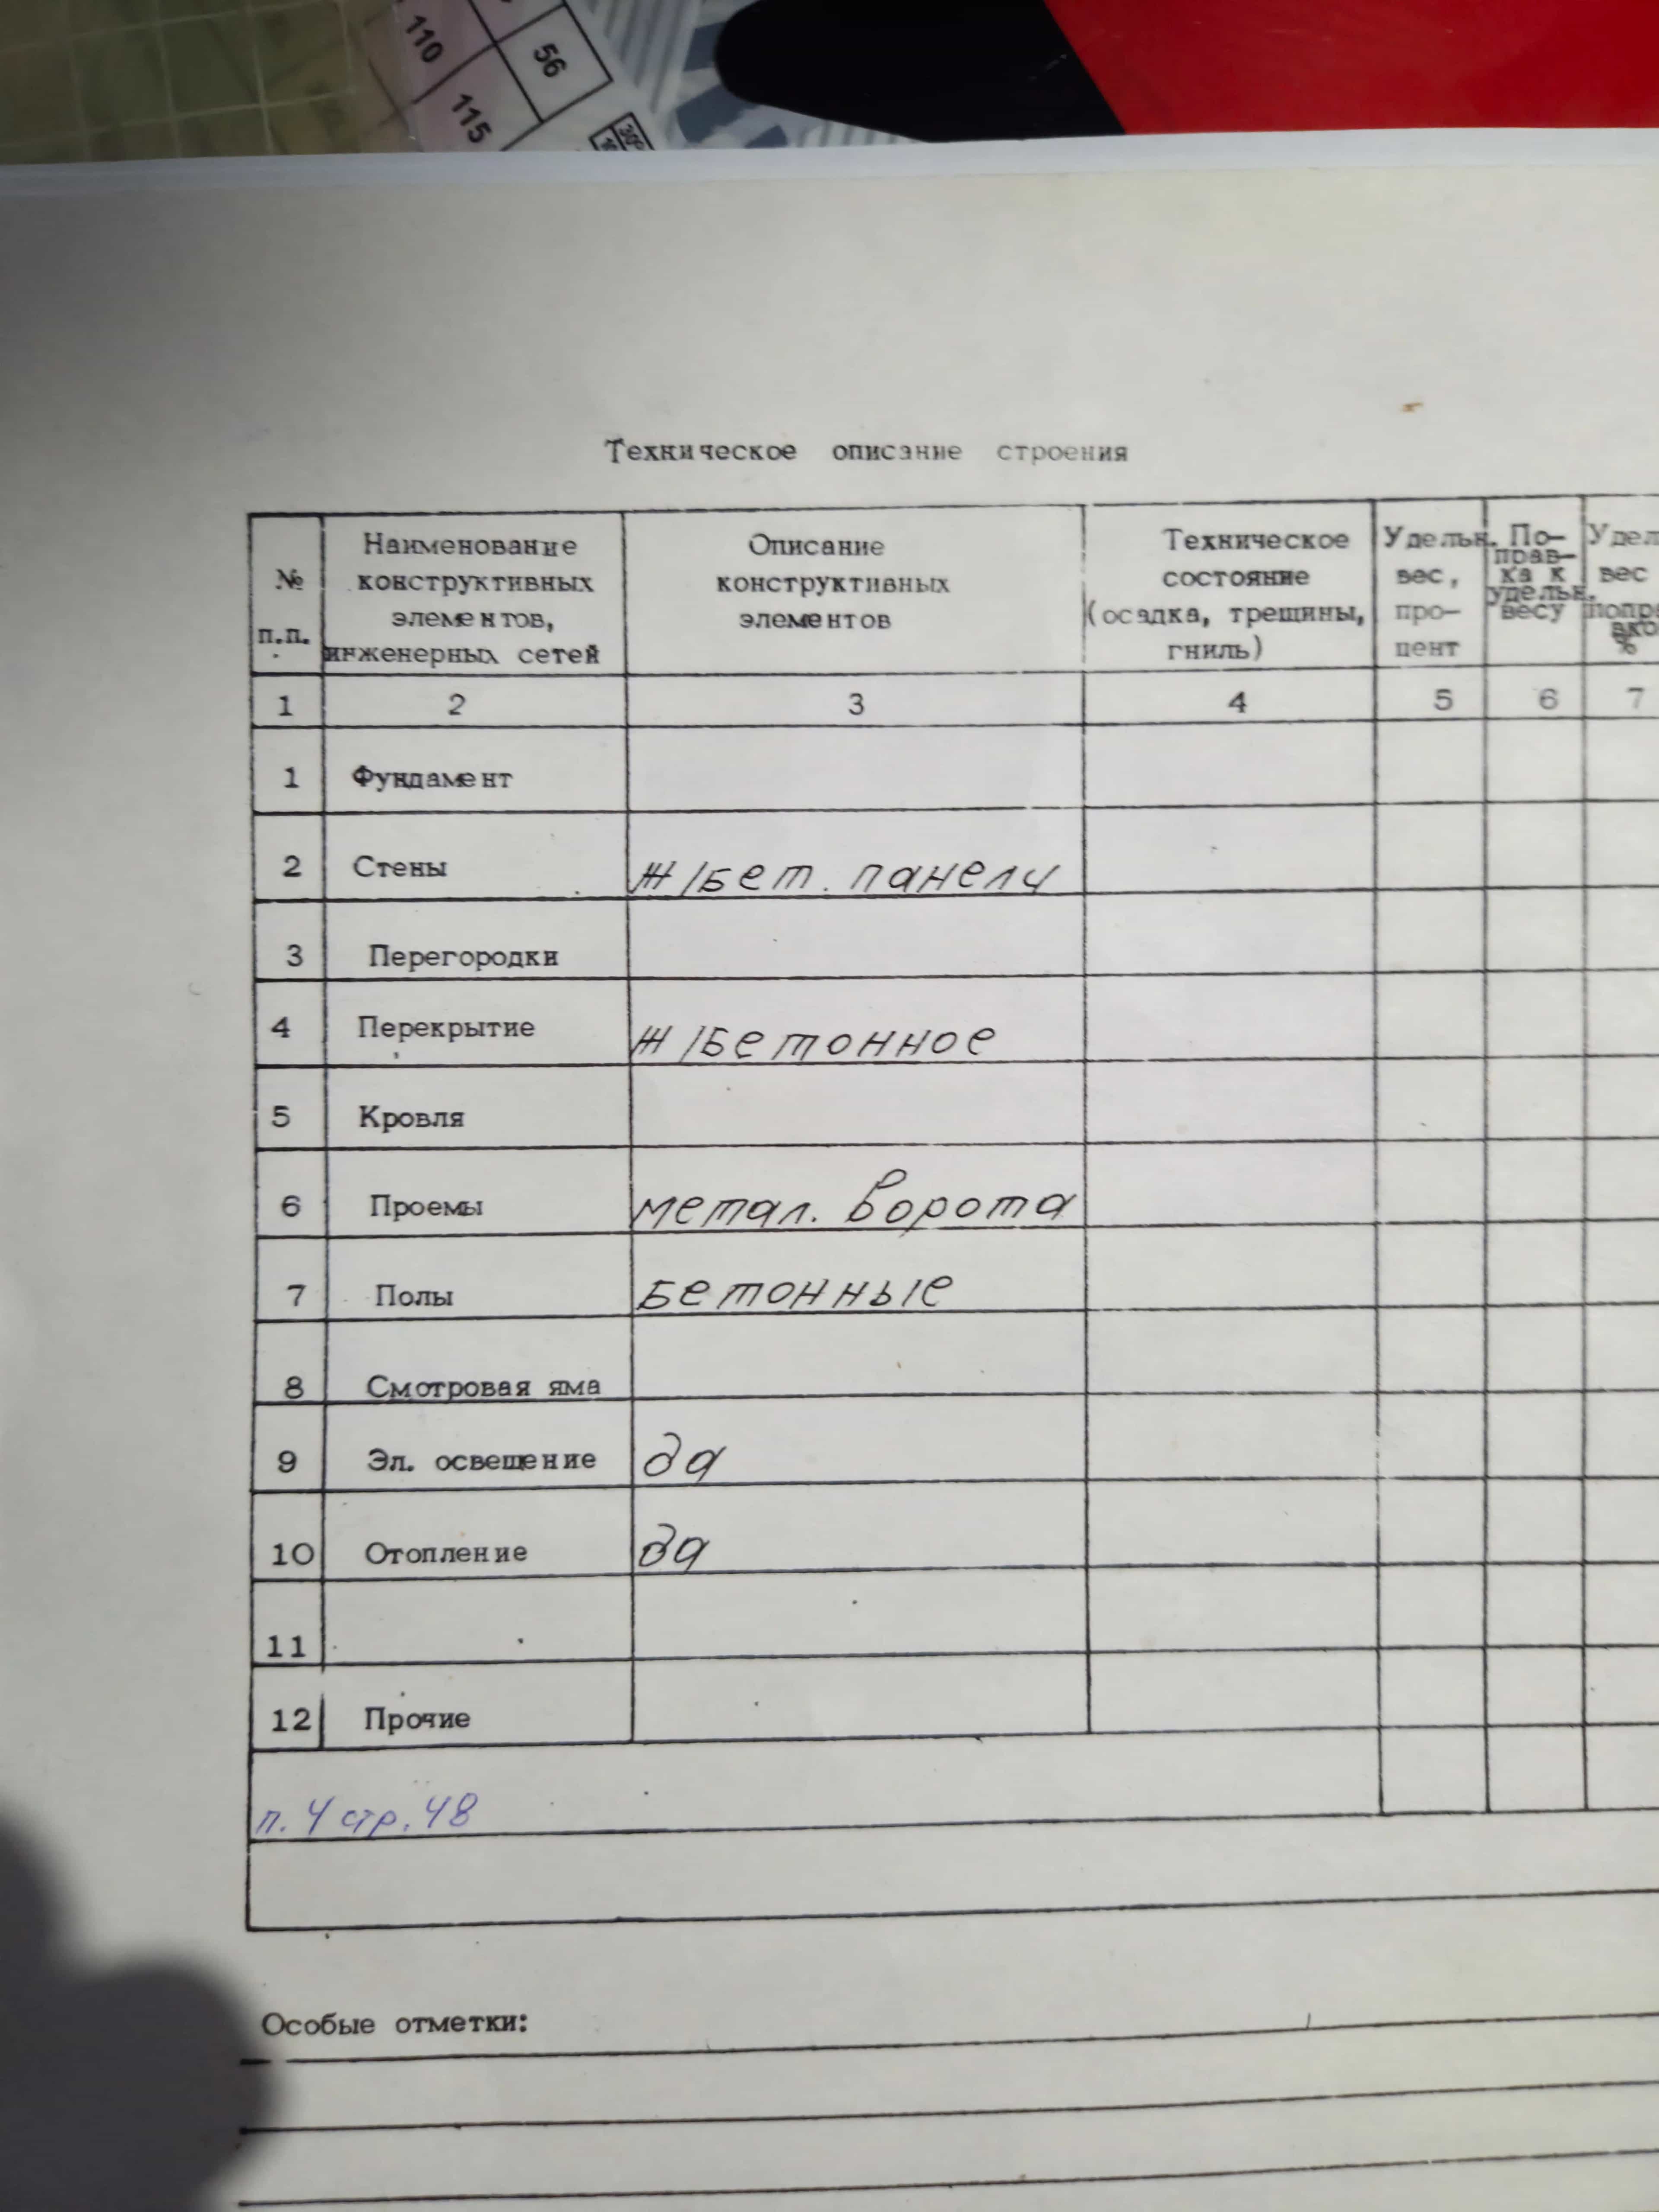 110
56
115
Техническое описание строения
№ п.п.
Наименование конструктивных элементов, инженерных сетей
Описание конструктивных элементов
Техническое состояние (осадка, трещины, гниль)
Удельн. вес, про- цент
По- прав- ка к удельн. весу
Удел вес попра вко %
1 2 3 4 5 6 7
1 Фундамент
2 Стены ж/бет. панели
3 Перегородки
4 Перекрытие ж/бетонное
5 Кровля
6 Проемы метал. ворота
7 Полы бетонные
8 Смотровая яма
9 Эл. освещение да
10 Отопление да
11
12 Прочие
п. 4 стр. 48
Особые отметки: